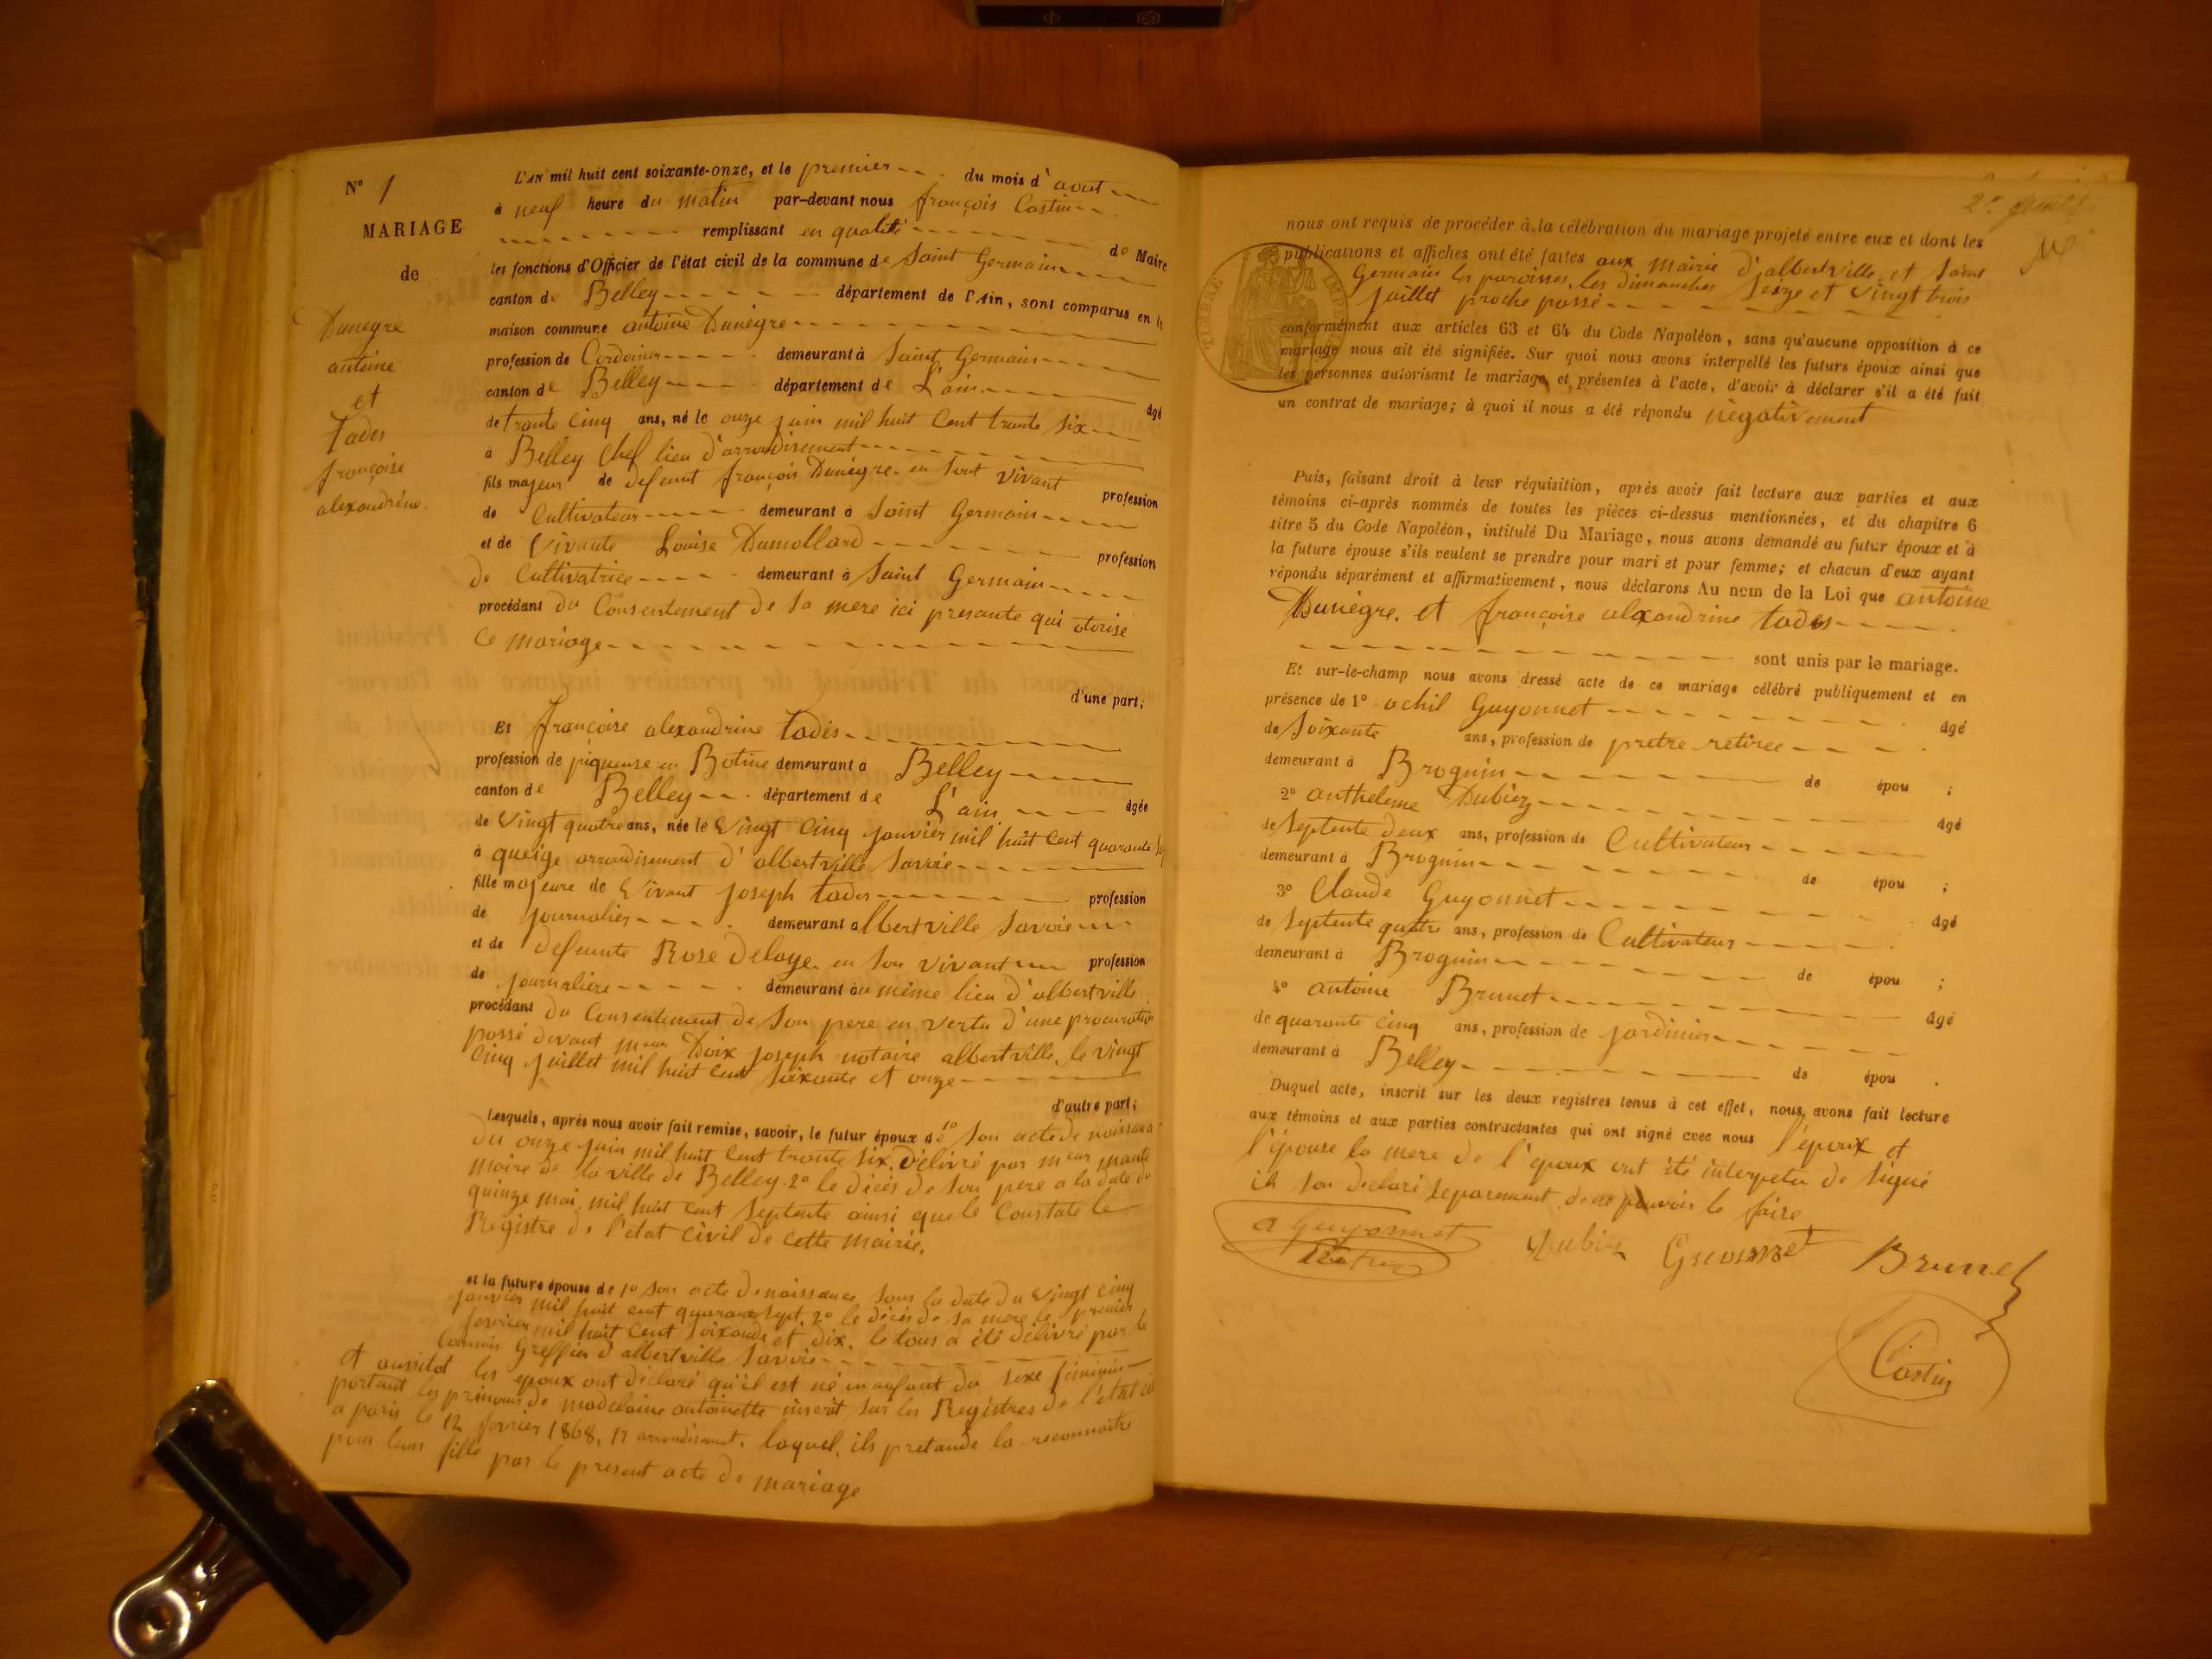 N° 1
MARIAGE
de
Dunègre
antoine
et
Tades
françoise
alexandrine.
L'AN mil huit cent soixante-onze, et le premier du mois d'aout
à neuf heure du matin par-devant nous françois Costin
remplissant en qualité de Maire
les fonctions d'Officier de l'état civil de la commune de Saint Germain
canton de Belley département de l'Ain, sont comparus en la
maison commune antoine Dunègre
profession de Cordonier demeurant à Saint Germain
canton de Belley département de L'ain âgé
de trante cinq ans, né le onze juin mil huit Cent trante Six
à Belley Chef lieu d'arrondisement
fils majeur de defeunt françois Dunègre en Sont vivant profession
de Cultivateur demeurant à Saint Germain
et de Vivante Louise Dumollard profession
de Cultivatrice demeurant à Saint Germain
procédant du Consentement de Sa mere ici presante qui otorise
Ce mariage
d'une part;
Et françoise alexandrine tadès
profession de piqueuse en Botine demeurant à Belley
canton de Belley département de L'ain âgée
de Vingt quatre ans, née le Vingt Cinq janvier mil huit Cent quarante
à queige arrondisement d'albertville Savoie
fille majeure de Vivant Joseph tades profession
de journalier demeurant albertville Savoie
et de defeunte Rose Deloye en Son vivant profession
de journalière demeurant au même lieu d'albertville
procédant du Consentement de Son pere en vertu d'une procuration
possé devant Doix Joseph notaire albertville, le vingt
Cinq juillet mil huit Cent Soixante et onze
d'autre part;
Lesquels, après nous avoir fait remise, savoir, le futur époux de 1° Son acte de naissance
du onze juin mil huit Cent trante Six, délivré par
maire de la ville de Belley. 2° le décès de Son pere a la date du
quinze mai mil huit Cent Septente ainsi que le Constate le
Registre de l'état Civil de Cette Mairie.
et la future épouse de 1° Son acte de naissance Sous la date du Vingt Cinq
janvier mil huit Cent quarante Sept. 2° le décès de Sa mere le premier
fevrier mil huit Cent Soixante et dix. le tous a été délivré par le
Commis Greffier d'albertville Savoie
et aussitot les epoux ont déclaré qu'il est né un enfant du Sexe féminin
portant les prénoms de madelaine antoinette inscrit Sur les Registres de l'état
a paris le 12 fevrier 1868, arrondisement. laquel, ils pretande la reconnaitre
pour leur fille par le present acte de mariage
nous ont requis de procéder à la célébration du mariage projeté entre eux et dont les
publications et affiches ont été faites aux Mairie d'albertville et Saint
Germain les paroisses, les dimanches Seize et Vingt trois
juillet proche possé
conformément aux articles 63 et 64 du Code Napoléon, sans qu'aucune opposition à ce
mariage nous ait été signifiée. Sur quoi nous avons interpellé les futurs époux ainsi que
les personnes autorisant le mariage et présentes à l'acte, d'avoir à déclarer s'il a été fait
un contrat de mariage; à quoi il nous a été répondu négativement
TIMBRE IMPÉ
Puis, faisant droit à leur réquisition, après avoir fait lecture aux parties et aux
témoins ci-après nommés de toutes les pièces ci-dessus mentionnées, et du chapitre 6
titre 5 du Code Napoléon, intitulé Du Mariage, nous avons demandé au futur époux et à
la future épouse s'ils veulent se prendre pour mari et pour femme; et chacun d'eux ayant
répondu séparément et affirmativement, nous déclarons Au nom de la Loi que antoine
Dunègre. et françoise alexandrine tades
sont unis par le mariage.
Et sur-le-champ nous avons dressé acte de ce mariage célébré publiquement et en
présence de 1° achil Guyonnet âgé
de Soixante ans, profession de pretre retiree
demeurant à Brognin de épou ;
2° anthelme Dubiez âgé
de Septente deux ans, profession de Cultivateur
demeurant à Brognin de épou ;
3° Claude Guyonnet âgé
de Septente quatre ans, profession de Cultivateur
demeurant à Brognin de épou ;
4° antoine Brunet âgé
de quarante Cinq ans, profession de jardinier
demeurant à Belley de épou .
Duquel acte, inscrit sur les deux registres tenus à cet effet, nous avons fait lecture
aux témoins et aux parties contractantes qui ont signé avec nous l'époux et
l'épouse la mere de l'epoux ont été interpeler de Signé
ils Son declaré Separement de ne pouvoir le faire
a Guyonnet
Dubiez Guyonnet Brunet
Costin